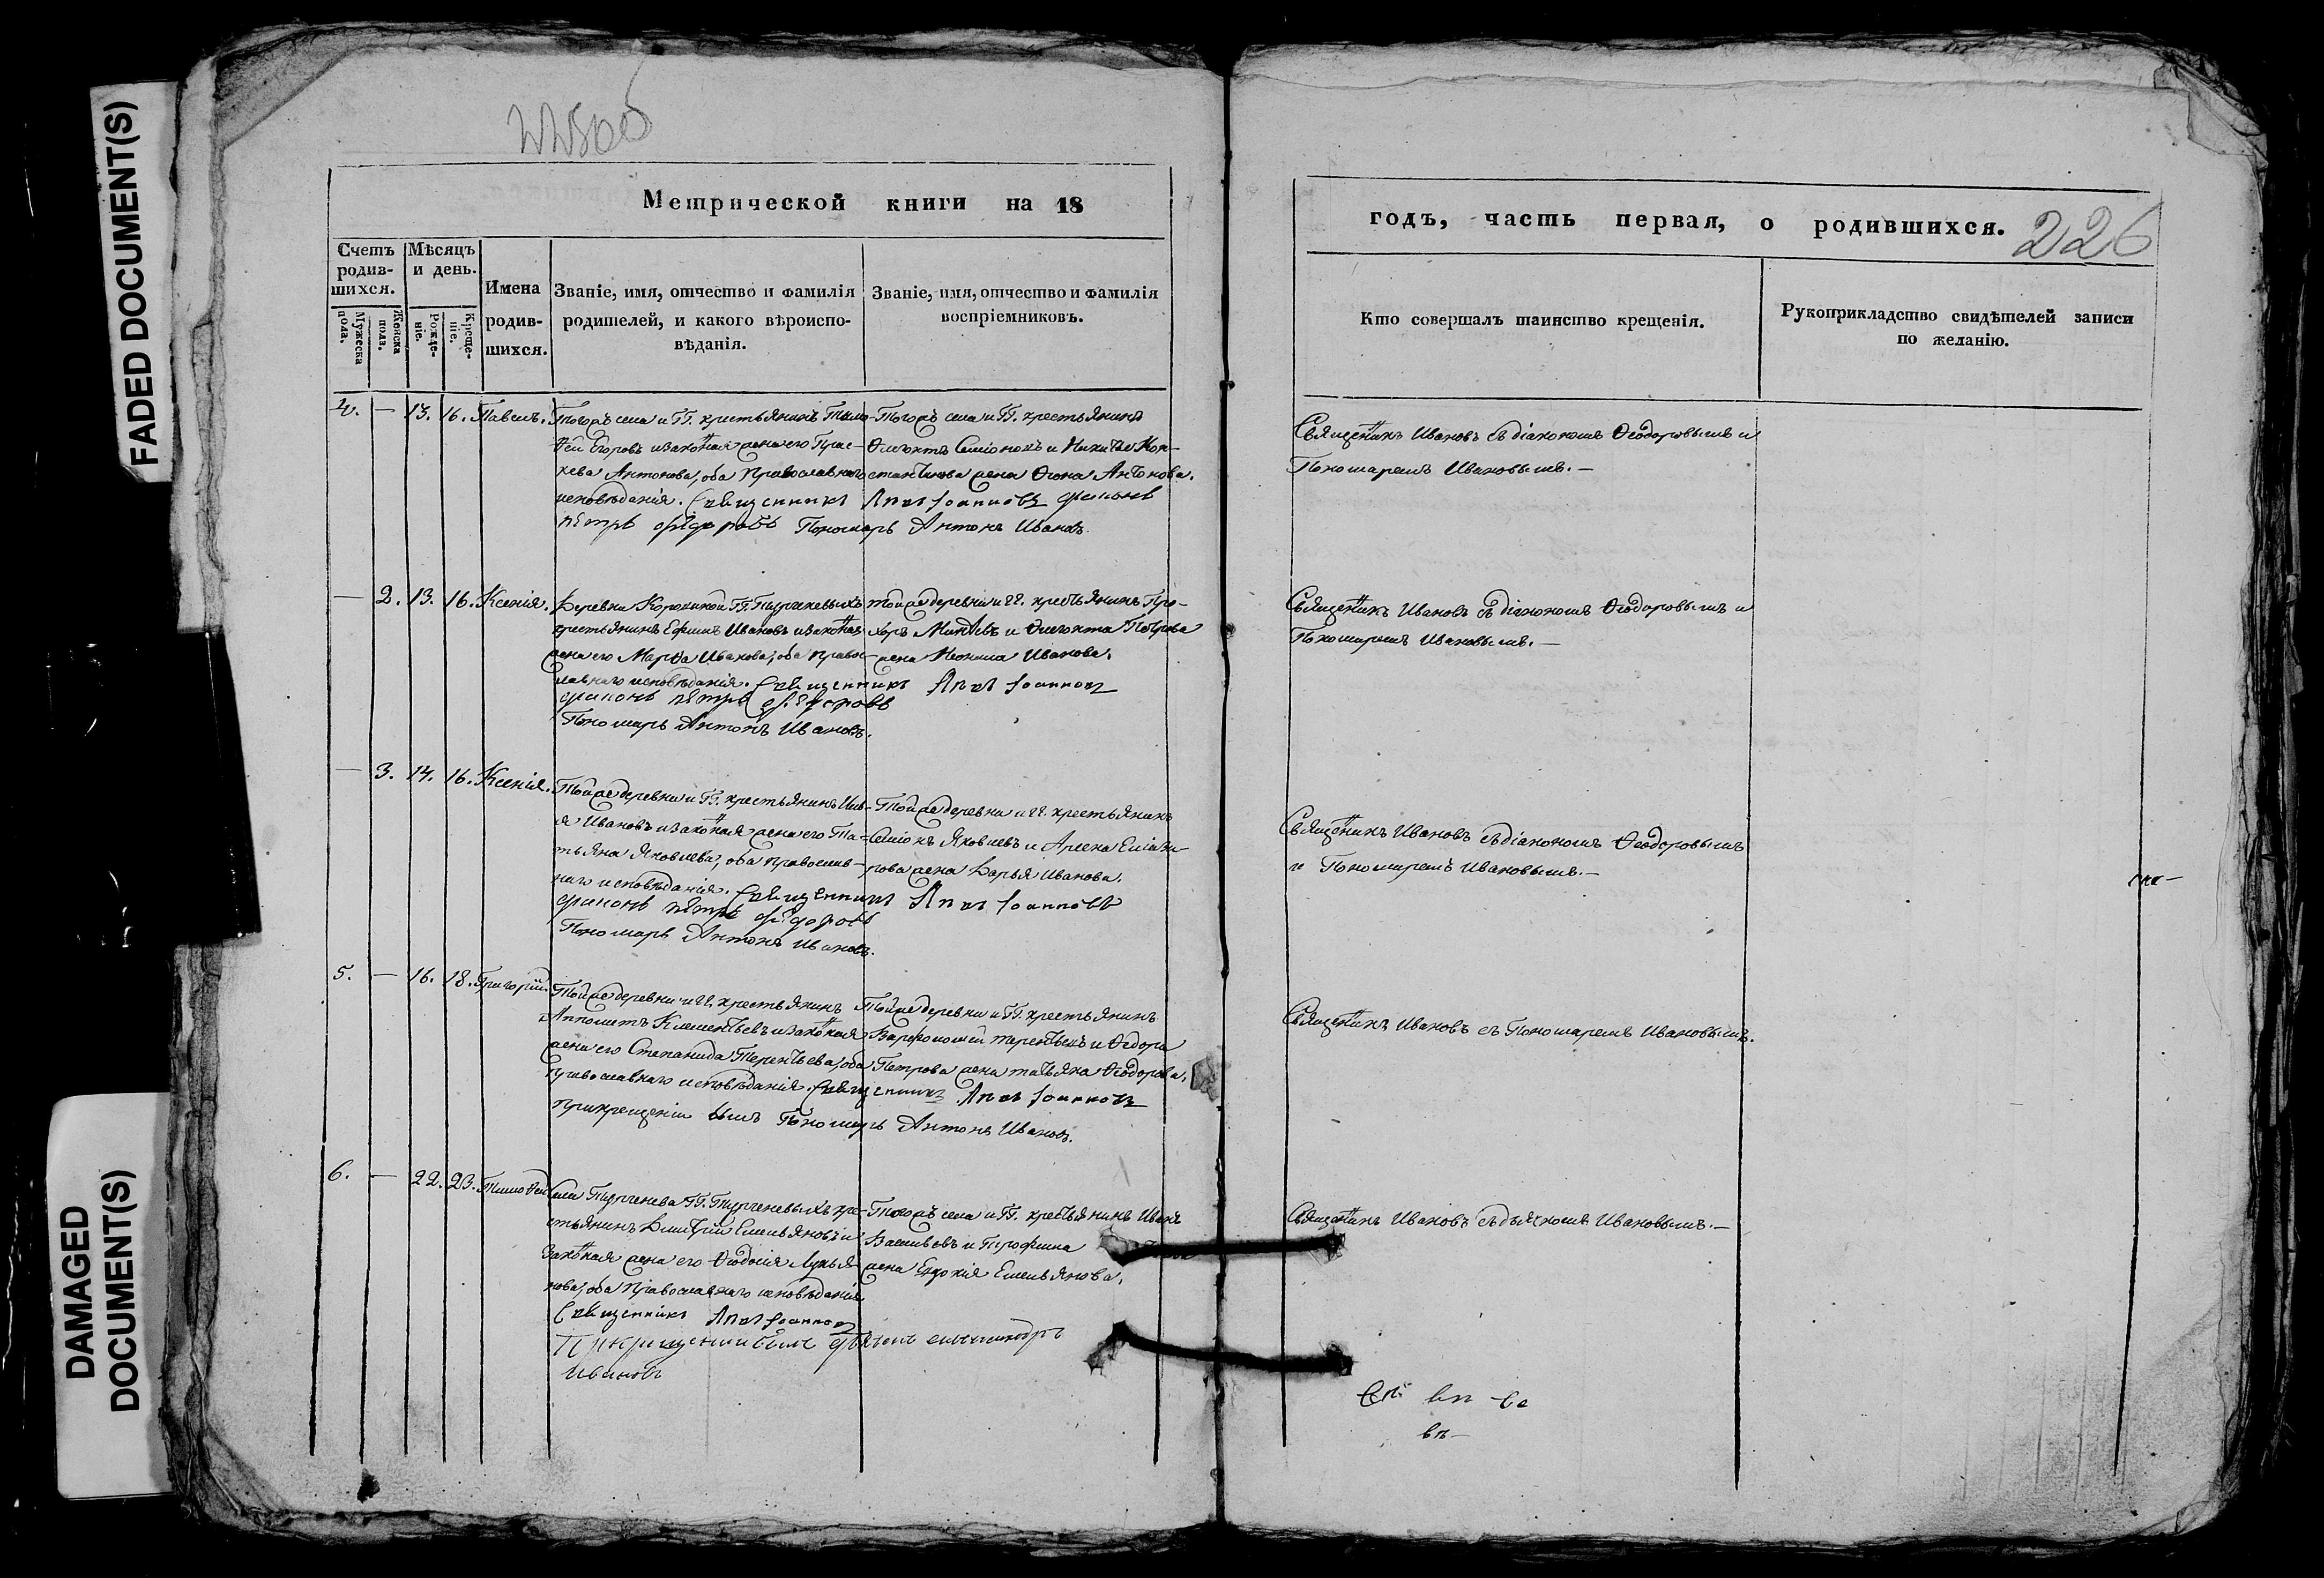 FADED DOCUMENT(S)
DAMAGED
DOCUMENT(S)
Метрической книги на 18
годъ, часть первая, о родившихся. 226
Счетъ
родив-
шихся.
Мужеска
пола.
Женска
пола.
Мѣсяцъ
и день.
Рожде-
ніе.
Креще-
ніе.
Имена
родив-
шихся.
Званіе, имя, отчество и фамилія
родителей, и какого вѣроиспо-
вѣданія.
Званіе, имя, отчество и фамилія
воспріемниковъ.
Кто совершалъ таинство крещенія.
Рукоприкладство свидѣтелей записи
по желанію.
4. — 13. 16. Павелъ.
Тогожъ села и ГГ. крестьянинъ Тимо-
ѳей Егоровъ и законная жена его Прас-
кева Антонова, оба Православнаго
исповѣданія. Священникъ Іоанновъ
Петръ Федоровъ Пономарь Антонъ Ивановъ.
Тогожъ села и ГГ. крестьянинъ
Семіоновъ и Никиты Кон-
стантинова жена Антонова.
Священникъ Ивановъ съ діакономъ Ѳеодоровымъ и
Пономаремъ Ивановымъ. —
— 2. 13. 16. Ксенія.
Деревни ГГ. Тургеневыхъ
крестьянинъ Ефимъ Ивановъ и законная
жена его Марѳа Иванова, оба право-
славнаго исповѣданія. Священникъ Іоанновъ
діаконъ Петръ Федоровъ
Пономарь Антонъ Ивановъ.
Тойже деревни и ГГ. крестьянинъ Про-
хоръ и Петрова
жена Иванова.
Священникъ Ивановъ съ діакономъ Ѳеодоровымъ и
Пономаремъ Ивановымъ. —
— 3. 14. 16. Ксенія.
Тойже деревни и ГГ. крестьянинъ Иль-
я Ивановъ и законная жена его Та-
тьяна Яковлева, оба православ-
наго исповѣданія. Священникъ Іоанновъ
діаконъ Петръ Федоровъ
Пономарь Антонъ Ивановъ.
Тойже деревни и ГГ. крестьянинъ
Семіонъ Яковлевъ и
жена Дарья Иванова.
Священникъ Ивановъ съ діакономъ Ѳеодоровымъ
и Пономаремъ Ивановымъ. —
5. — 16. 18. Григорій.
Тойже деревни и ГГ. крестьянинъ
Климентьевъ и законная
жена его Степанида Терентьева, оба
православнаго исповѣданія. Священникъ Іоанновъ
при крещеніи былъ Пономарь Антонъ Ивановъ.
Тойже деревни и ГГ. крестьянинъ
Варфоломей Терентьевъ и Ѳедора
Петрова жена татьяна Ѳеодорова.
Священникъ Ивановъ съ Пономаремъ Ивановымъ.
6. — 22. 23. Тимоѳей
Села Тургенева ГГ. Тургеневыхъ кре-
стьянинъ Дмитрій Емельяновъ и
законная жена его Ѳеодосія Лукья-
нова, оба Православнаго исповѣданія
Священникъ Іоанновъ
При крещеніи былъ
Ивановъ
Тогожъ села и ГГ. крестьянинъ Иванъ
Васильевъ и Трофима
жена Евдокія Емельянова.
Священникъ Ивановъ съ дьячкомъ Ивановымъ. —